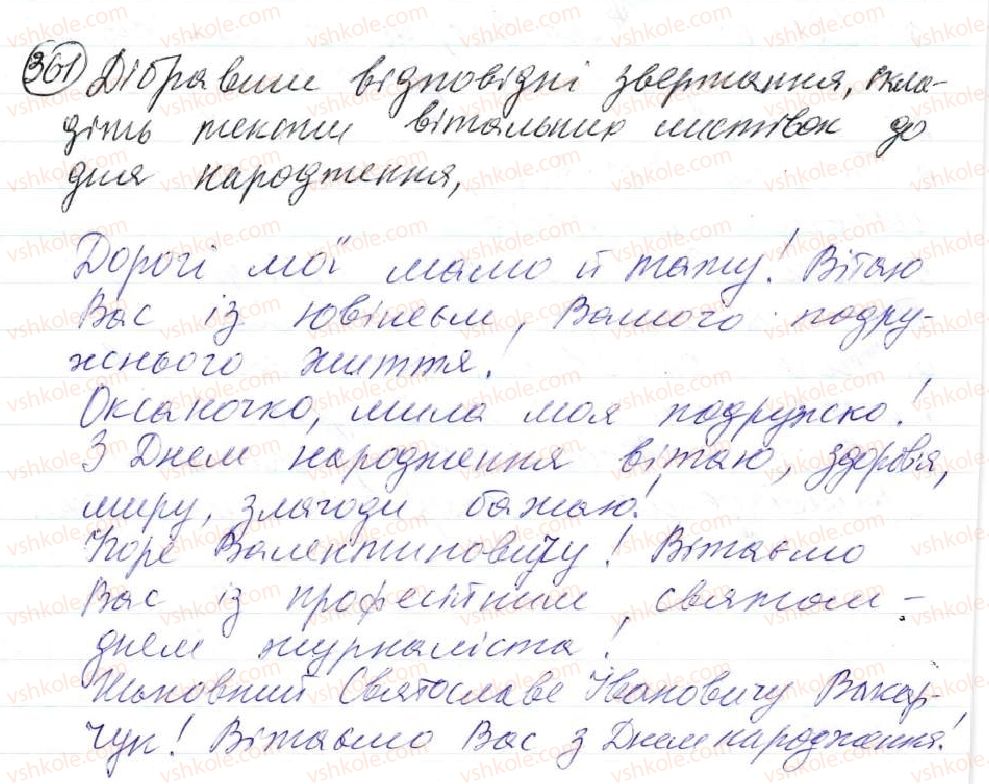 361 Дібравши відповідні звертання, скла-
діть тексти вітальних листівок до
дня народження,
Дорогі мої мамо й тату! Вітаю
Вас із ювілеєм, Вашого подру-
жнього життя!
Оксаночко, мила моя подружко!
З Днем народження вітаю, здоров'я,
миру, злагоди бажаю!
Ігоре Валентиновичу! Вітаємо
Вас із професійним святом -
днем журналіста!
Шановний Святославе Івановичу Вакар-
чук! Вітаємо Вас з Днем народження!
vshkole.com